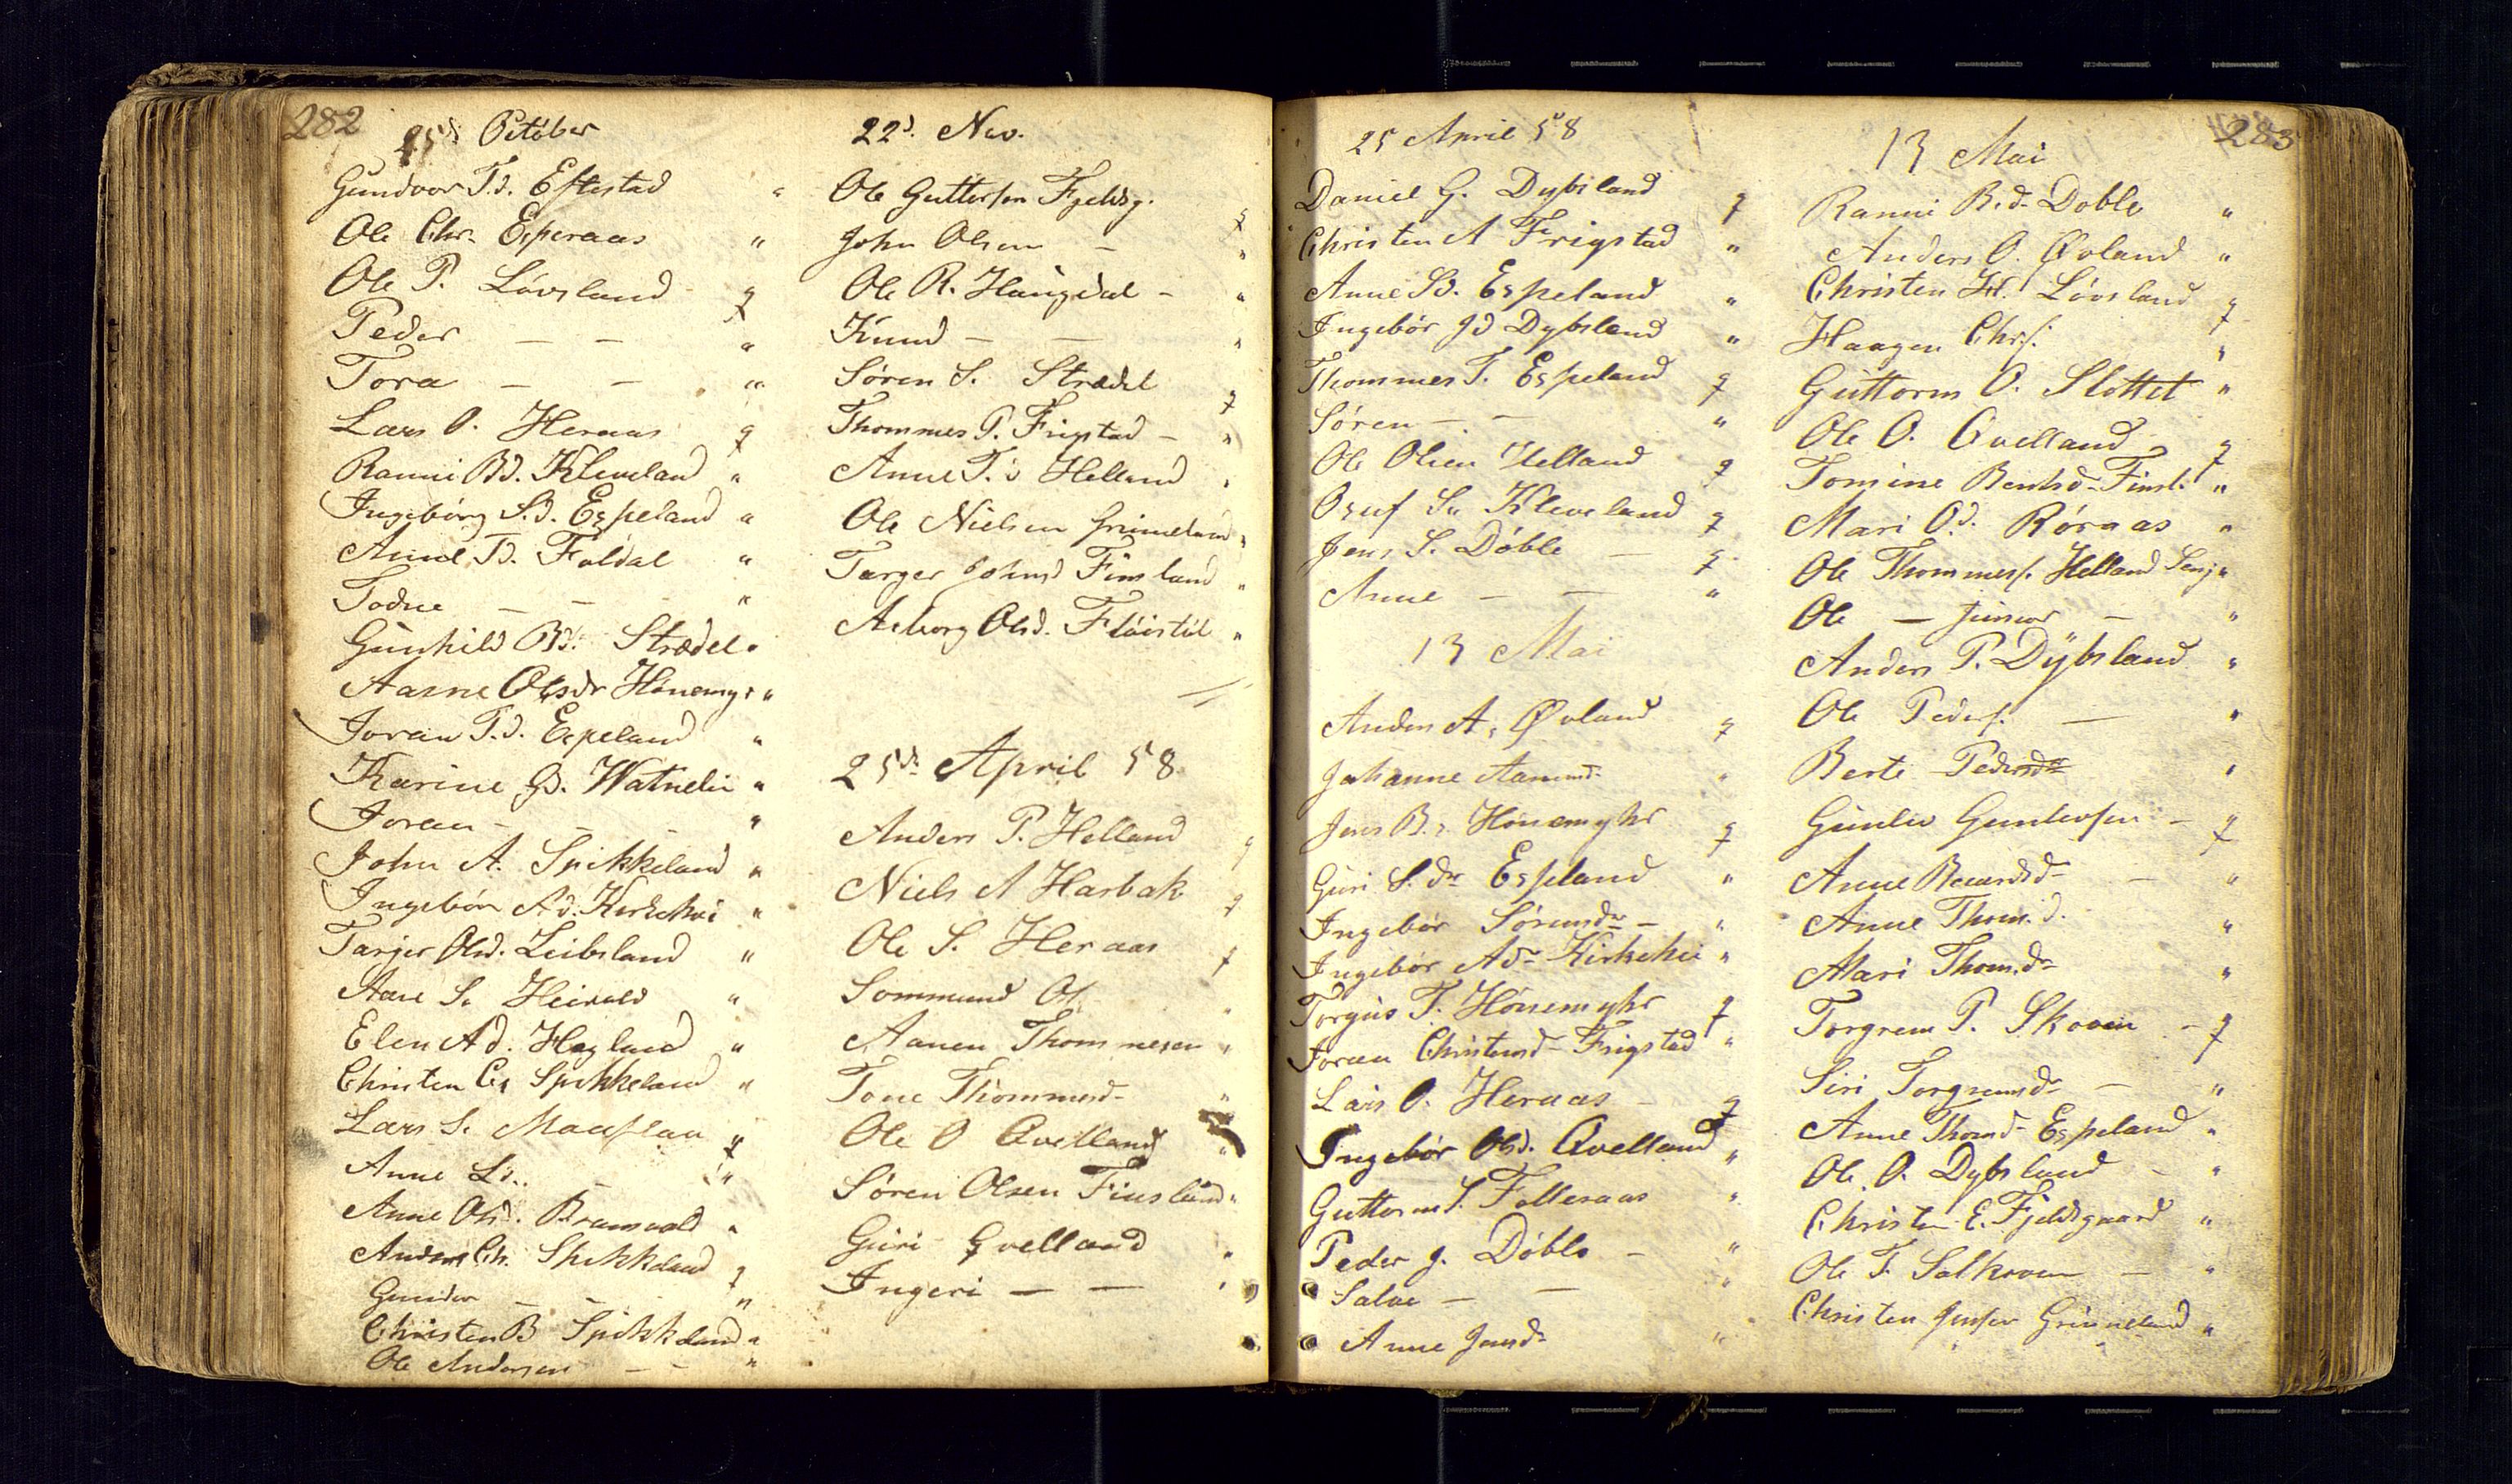 282
25de October
Gundvor T.d. Eftestad "
Ole Chr. Eperaas "
Ole P. Lövsland g
Peder — — "
Tora — — "
Lars O. Heraas g
Ranni Bd. Kleveland "
Ingebörg S.d. Espeland "
Anne Td. Foldal "
Todne — — "
Gunhild Bd. Strædel "
Aasne Olsdr Hönemyr "
Joran T.d. Espeland "
Karine Gd. Watnelie "
Joran — — "
John A. Spikkeland "
Ingebör Ad. Kirkehei "
Tarjer Olsd. Leibsland "
Aane S. Heivold "
Elen Ad. Hægland "
Christen C. Spikkeland "
Lars S. g
Anne Ld. "
Anne Olsd. "
Anders Ch. Spikkeland g
Gunder — — "
Christen B Spikkeland "
Ole Andersen — — "
22d. Nov.
Ole Guttorsen Fjeldsg. g
John Olsen — "
Ole R. Haugdal — "
Knud — — "
Sören S. Strædel g
Thommes P. Frigstad — "
Anne T.d Helland "
Ole Nielsen Grimeland "
Targer Johnsd Finsland "
Asborg Olsd. Flöistöl "
25de April 58
Anders P. Helland g
Niels A Harbak g
Ole S. Heraas g
Sommund Ol. "
Aanen Thommesen "
Tone Thommesd. "
Ole O Qvelland "
Sören Olsen Finsland "
Guri Qvelland "
Ingeri — — "
25 April 58
Daniel G. Dybsland g
Christen A Frigstad "
Anne Sd. Espeland "
Ingebör Jd Dybsland "
Thommes T. Espeland g
Sören — — "
Ole Olsen Helland g
Osuf S. Kleveland g
Jens S. Döble — g
Anne — — "
13 Mai
Anders A. Øvland g
Johanne Aamund. "
Jens B. Hönemyhr g
Guri S. dr Espeland "
Ingebör Sörensdr — "
Ingebör Adr Kirkehei "
Torgus T. Hönemyhr g
Joran Christensd. Frigstad "
Lars O. Heraas — g
Ingebör Olsd. Qvelland "
Guttorm S. Folleraas "
Peder J. Döble — "
Salve — — "
Anne Jensdr "
283
13 Mai
Ranni B.d. Doble "
Anders O. Øvland "
Christen H. Lövsland g
Haagen Chrs. "
Guttorm O. Slottet "
Ole O. Qvelland g
Tomine Bentsd. Finsl. "
Mari Od. Röraas "
Ole Thommess. Helland Senj "
Ole — junior — "
Anders P. Dÿbsland "
Ole Peders. — "
Berte Pedersdr "
Gunlev Gunlevsen — g
Anne — "
Anne Thom. d. "
Mari Thom.dr "
Torgrem P. Skoven — g
Siri Torgremsdr — "
Anne Thomd. Espeland "
Ole O. Dybsland — "
Christen E. Fjeldsgaard "
Ole T. — "
Christen Jensen Grimeland "